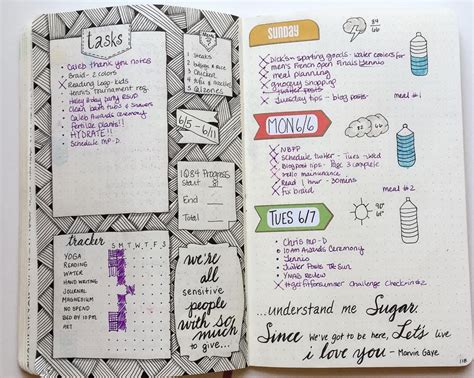 tasks
Caleb thank you notes
Braid - 2 colors
Reading log - kids
tennis tournament reg.
Haley B-day party RSVP
Clean bath tubs & showers
Caleb Awards Ceremony
Fertilize plants!!
HYDRATE!!
Schedule MP-D
1 Snacks
3 Chicken
5 Calzones
6/5 - 6/11
1Q84 Progress
Start 81
End
Total
tracker
S M T W T F S
YOGA
READING
WATER
HAND WRITING
JOURNAL
MAGNESIUM
NO SPEND
BED BY 10PM
ART
we're
all
sensitive
people
with so
much
to give...
SUNDAY
Dick's sporting goods - water coolers for
men's French open finals tennis
meal planning
grocery shopping
twitter posts
Tuesday tips - blog posts
meal #1
MON 6/6
NBPP
Schedule twitter - Tues - Wed
blog post tips - Project Life
Read 1 hour - 30mins
Fix braid
meal #2
TUES 6/7
Chris MP-D
10AM Awards Ceremony
Tennis
Twitter Posts
YNAB Review
#getfitforsummer Challenge Check-in #2
...understand me Sugar.
Since we've got to be here, Let's live
i love you - Marvin Gaye